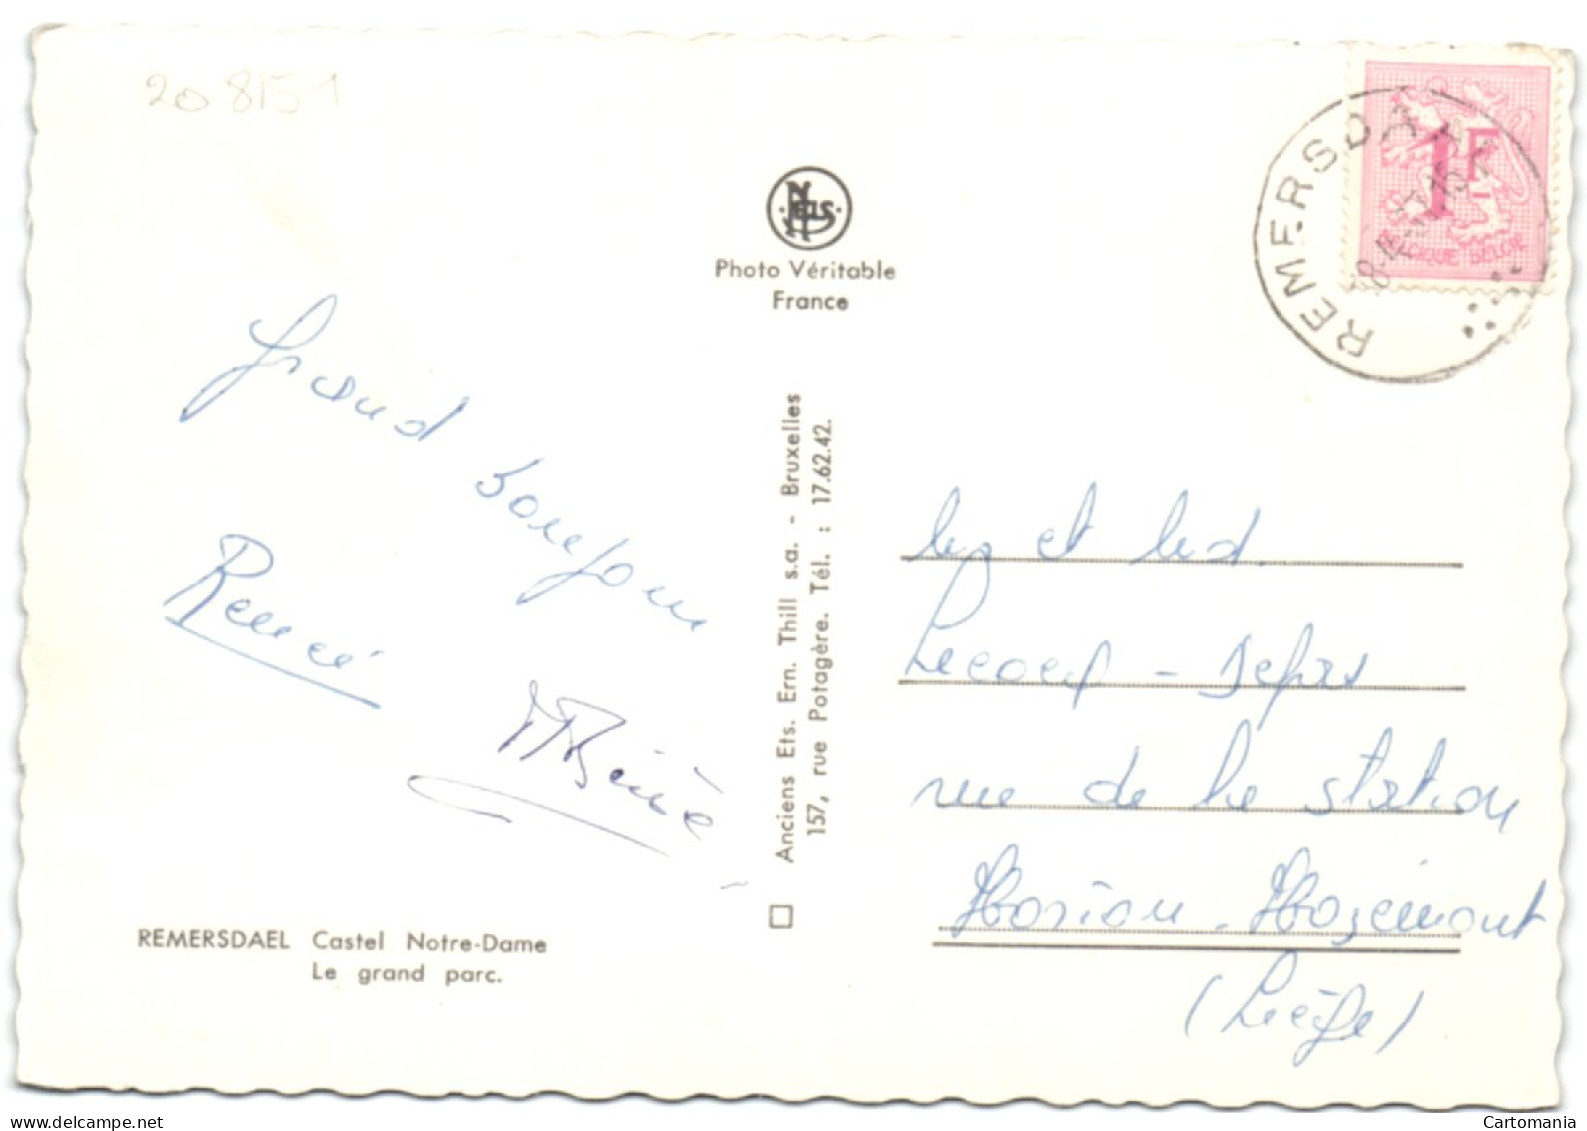 208151
REMERSDAEL
1F
BELGIQUE BELGIE
Nels
Photo Véritable
France
Grand bonjour
Renée
Anciens Ets. Ern. Thill s.a. - Bruxelles
157, rue Potagère. Tél. : 17.62.42.
et
rue de la station
Horion-Hozémont
(Liège)
REMERSDAEL Castel Notre-Dame
Le grand parc.
www.delcampe.net
Cartomania